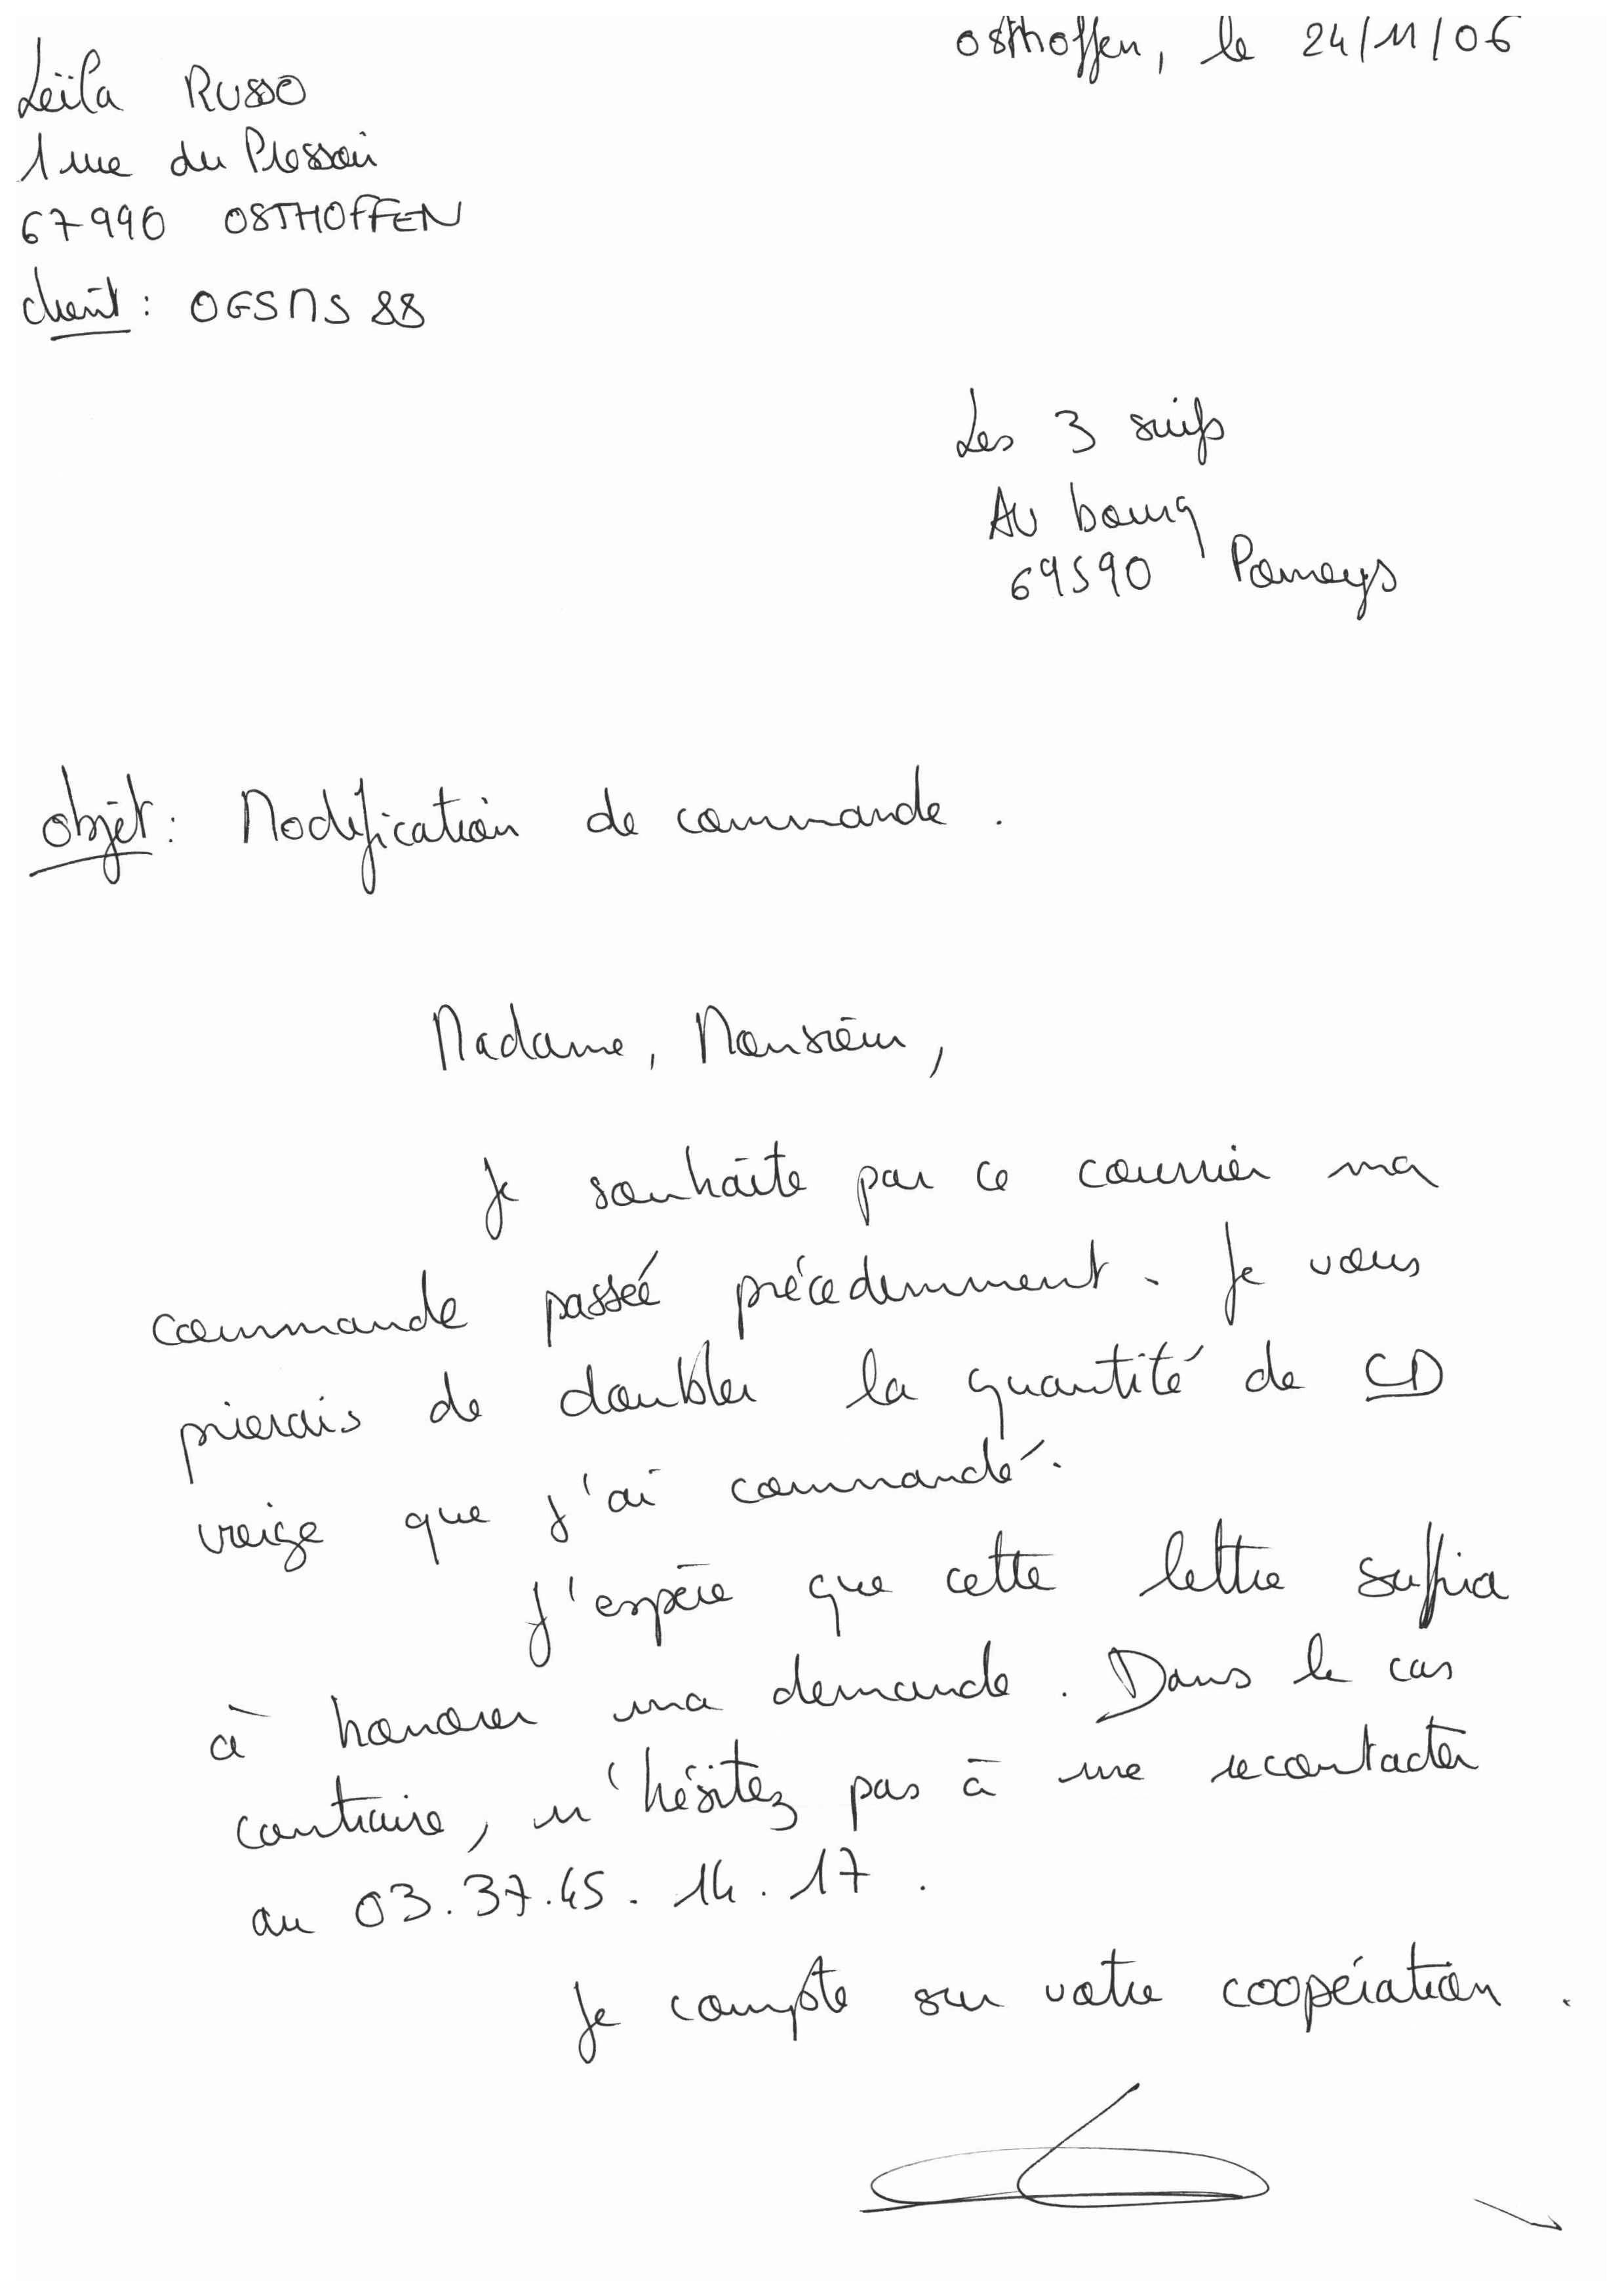 Osthoffen, le 24/11/06
Leïla RUSSO
1 rue du Pressoir
67990 OSTHOFFEN
client : OGSNS 88
Les 3 suifs
AU bourg
69590 Pomeys
objet : Modification de commande .
Madame, Monsieur,
Je souhaite par ce courrier ma
commande passée précedemment. Je vous
prierais de doubler la quantité de CD
vierge que j'ai commandé.
J'espère que cette lettre suffira
à honorer ma demande. Dans le cas
contraire, n'hésitez pas à me recontacter
au 03.37.45.14.17.
Je compte sur votre coopération.